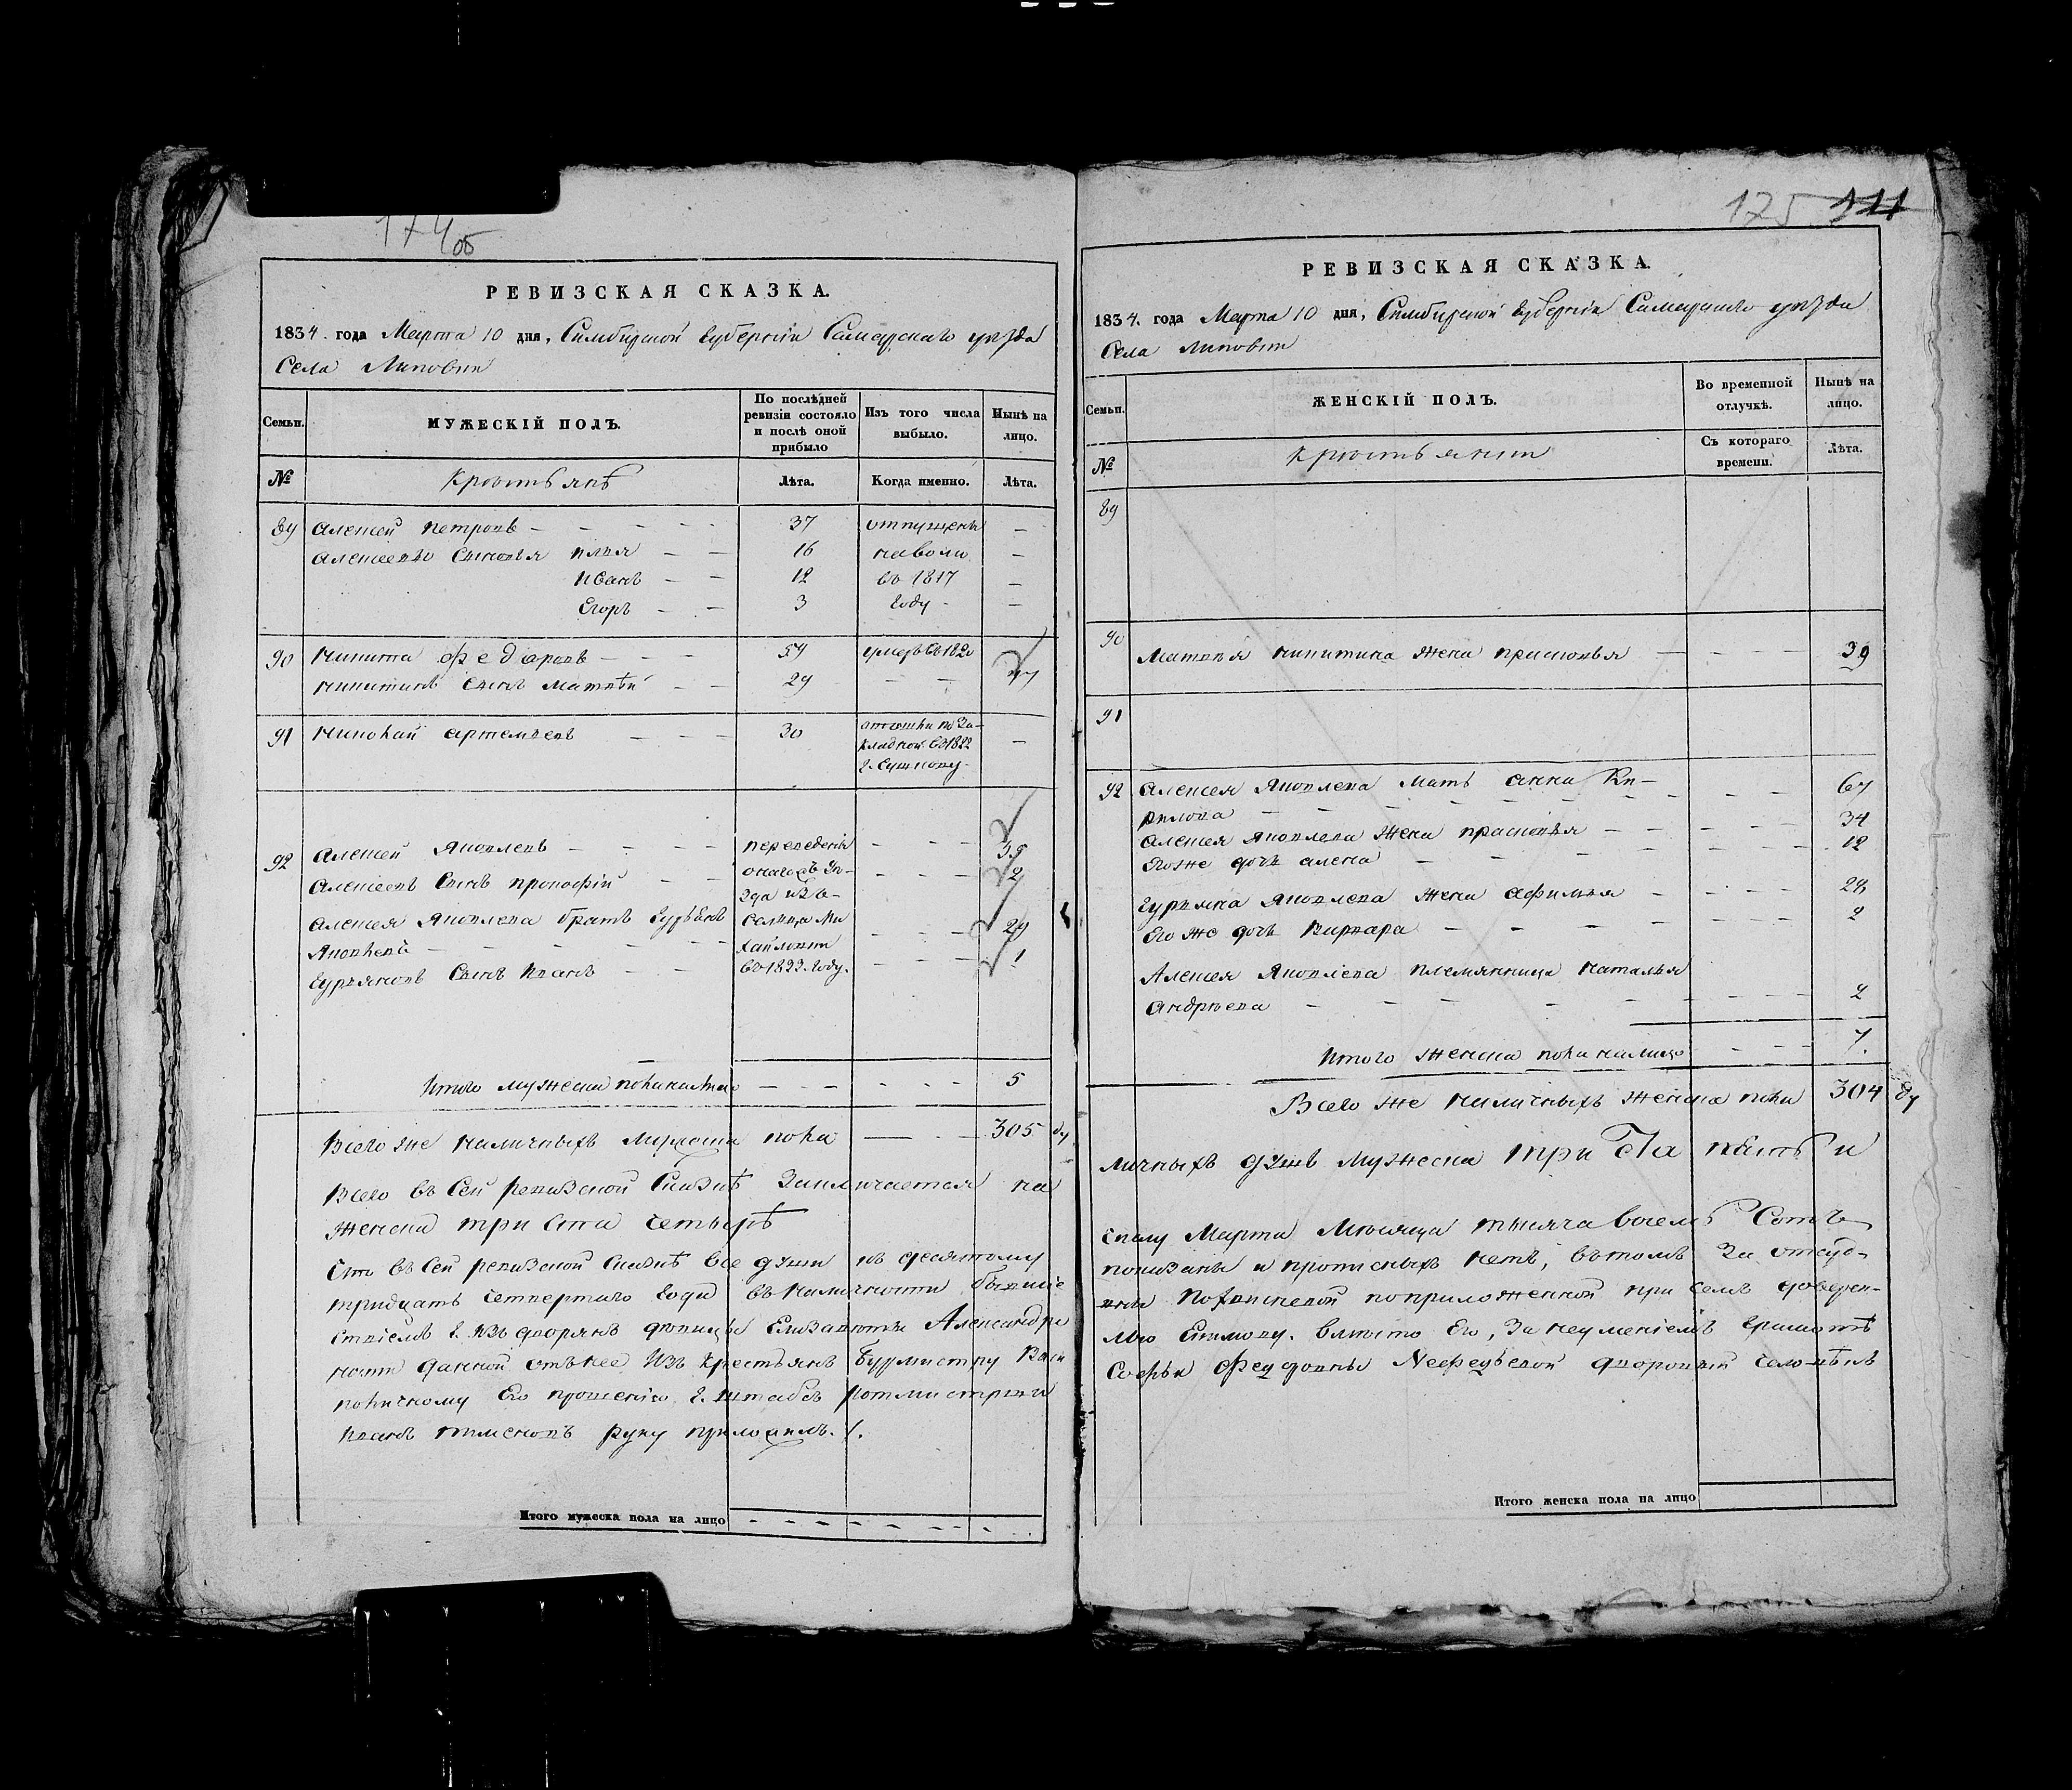 174 об
РЕВИЗСКАЯ СКАЗКА.
1834. года Марта 10 дня, Симбирской губернiи Самарскаго уѣзда
Села Липовки
Семьи.
МУЖЕСКІЙ ПОЛЪ.
По послѣдней ревизіи состояло и послѣ оной прибыло
Изъ того числа выбыло.
Нынѣ на лицо.
№
Крестьянѣ
Лѣта.
Когда именно.
Лѣта.
89 Алексей Петровъ — 37 отпущены —
Алексеевы Сыновья Илья — 16 наволю —
Иванъ — 12 въ 1817 —
Егоръ — 3 году —
90 Никита Федаровъ — 54 умеръ въ 1820
Никитинъ Сынъ Матвѣй — 29 — —
91 Николай Артемьевъ — 30 по За-
кладной въ 1822 —
92 Алексей Яковлевъ — переведены — 35
Алексеевъ Сынъ Прокофiй — — 2
Алексея Яковлева братъ Гурьянъ — 29
Гурьяновъ Сынъ Иванъ — въ 1823 году. — 1
Итого мужеска пола налицо — 5
Всего же наличныхъ мужеска пола — 305 ду
Всего въ Сей ревизской Сказкѣ Заключается на
женска три ста четырѣ
Что въ Сей ревизской Сказкѣ все души къ десятому
тридцать четвертаго года въ наличности бывшiе
г. изъ дворянъ девицы Елизаветы Александро
данной отънее Изъ Крестьянъ Бурмистру Васи
поличному Его прошенiю г. штабсъ ротмистрши
Иванъ руку приложилъ. /.
Итого мужеска пола на лицо
125 211
РЕВИЗСКАЯ СКАЗКА.
1834. года Марта 10 дня, Симбирской губернiи Самарскаго уѣзда
Села Липовки
Семьи.
ЖЕНСКІЙ ПОЛЪ.
Во временной отлучкѣ.
Нынѣ на лицо.
№
Крестьянки
Съ котораго времени.
Лѣта.
89
90 Матвѣя Никитина жена Прасковья — 39
91
92 Алексея Яковлева Мать Анна Ки-
рилова — 67
Алексея Яковлева жена Прасковья — 34
Егоже дочь Алена — 12
Гурьяна Яковлева жена Афимья — 28
Его же дочь Варвара — 2
Алексея Яковлева племянница Наталья
Андреева — 2
Итого женска пола налицо — 7.
Всего же наличныхъ женска пола 304 ду
личныхъ душъ мужеска три ста пять и
Марта Мѣсяца тысяча восемь Сотъ
показаны и прописныхъ нетъ, вътомъ За отсуд-
поприложенной при семъ доверен-
вместо Его, За неуменiемъ грамотѣ
Софьи Федоровны дворовый человѣкъ
Итого женска пола на лицо